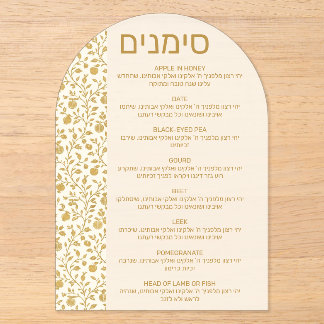 סימנים
APPLE IN HONEY
יהי רצון מלפניך ה' אלקינו ואלקי אבותינו, שתחדש
עלינו שנה טובה ומתוקה
DATE
יהי רצון מלפניך ה' אלקינו ואלקי אבותינו, שיתמו
אויבינו ושונאינו וכל מבקשי רעתנו
BLACK-EYED PEA
יהי רצון מלפניך ה' אלקינו ואלקי אבותינו, שירבו
זכיותינו
GOURD
יהי רצון מלפניך ה' אלקינו ואלקי אבותינו, שתקרע
רוע גזר דיננו ויקראו לפניך זכיותינו
BEET
יהי רצון מלפניך ה' אלקינו ואלקי אבותינו, שיסתלקו
אויבינו ושונאינו וכל מבקשי רעתנו
LEEK
יהי רצון מלפניך ה' אלקינו ואלקי אבותינו, שיכרתו
אויבינו ושונאינו וכל מבקשי רעתנו
POMEGRANATE
יהי רצון מלפניך ה' אלקינו ואלקי אבותינו, שנרבה
זכיות כרימון
HEAD OF LAMB OR FISH
יהי רצון מלפניך ה' אלקינו ואלקי אבותינו, שנהיה
לראש ולא לזנב